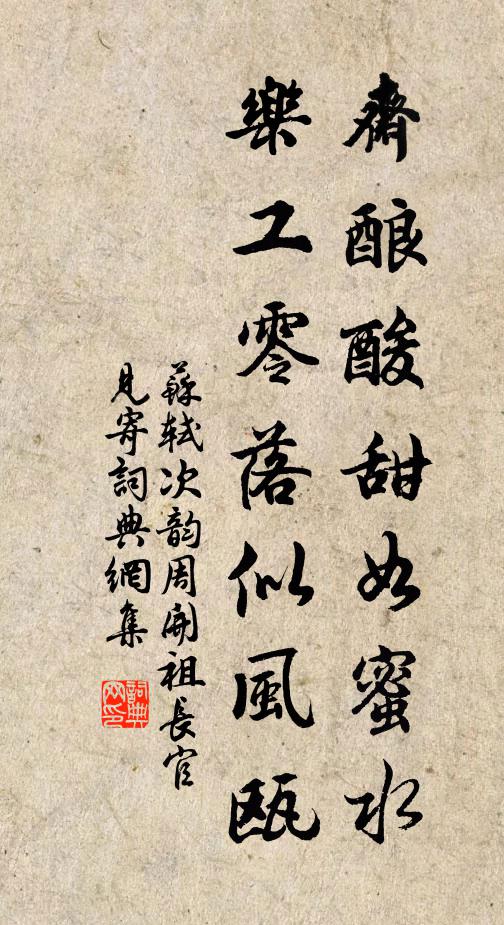 齋釀酸甜如蜜水
樂工零落似風甌
蘇軾次韵周開祖長官
見寄詞典網集
詞典网印